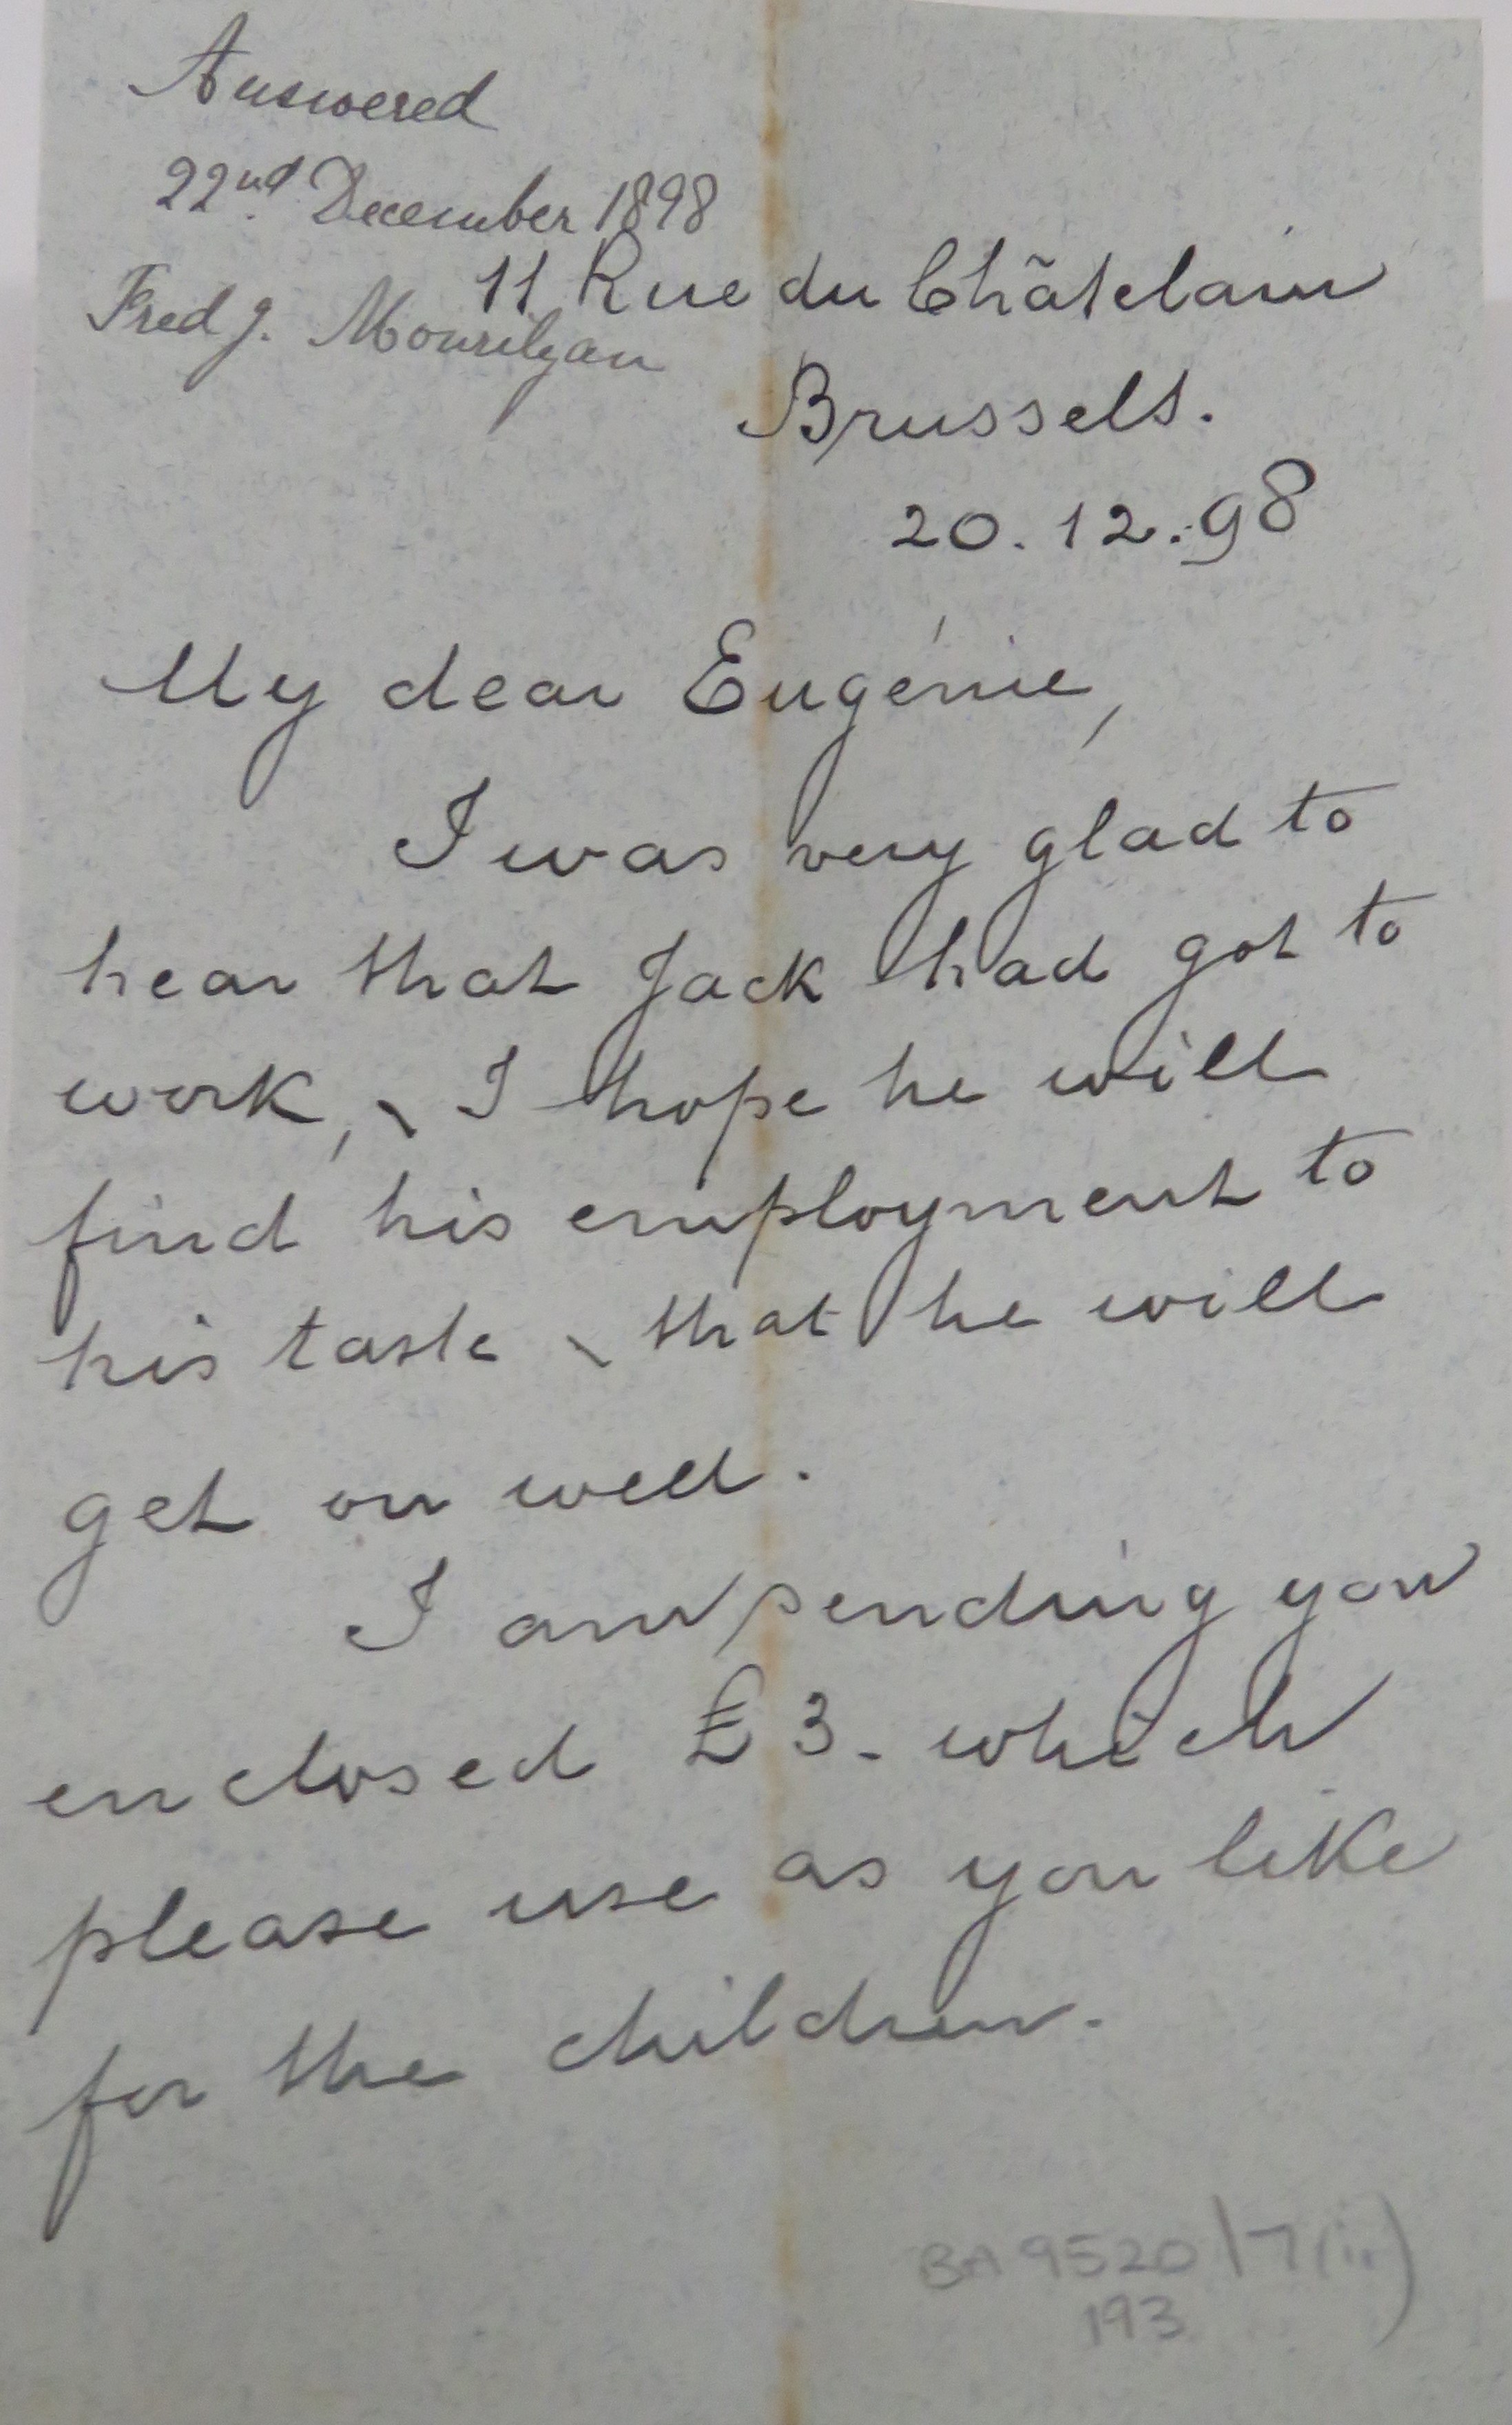 Answered
22nd December 1898
Fred J. Mourilyan
11 Rue du Châtelain
Brussels.
20.12.98
My dear Eugénie,
I was very glad to
hear that Jack had got to
work, & I hope he will
find his employment to
his taste & that he will
get on well.
I am sending you
enclosed £3. which
please use as you like
for the children.
BA 9520/7(ii)
193